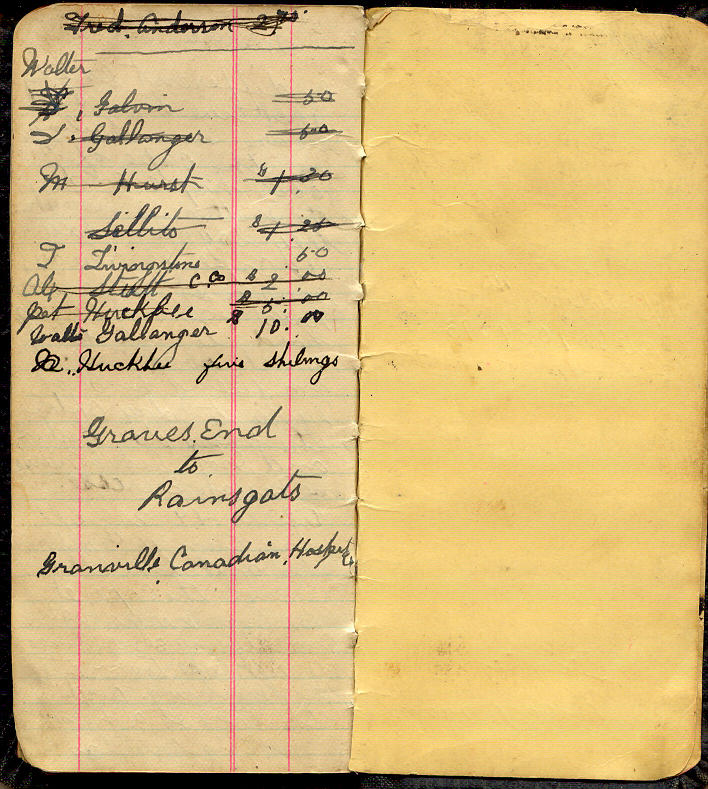 Fred. Anderson 2
Walter
Galvin 50
Gallanger 50
M Hurst $1.30
Sellito $1.25
T Livingstone 50
C.Co $2.00
Pat Huckfee $5.00
Walte Gallanger $10.00
Huckfee five shilings
Graves.End
to
Rainsgats
Granville Canadian. Hospit